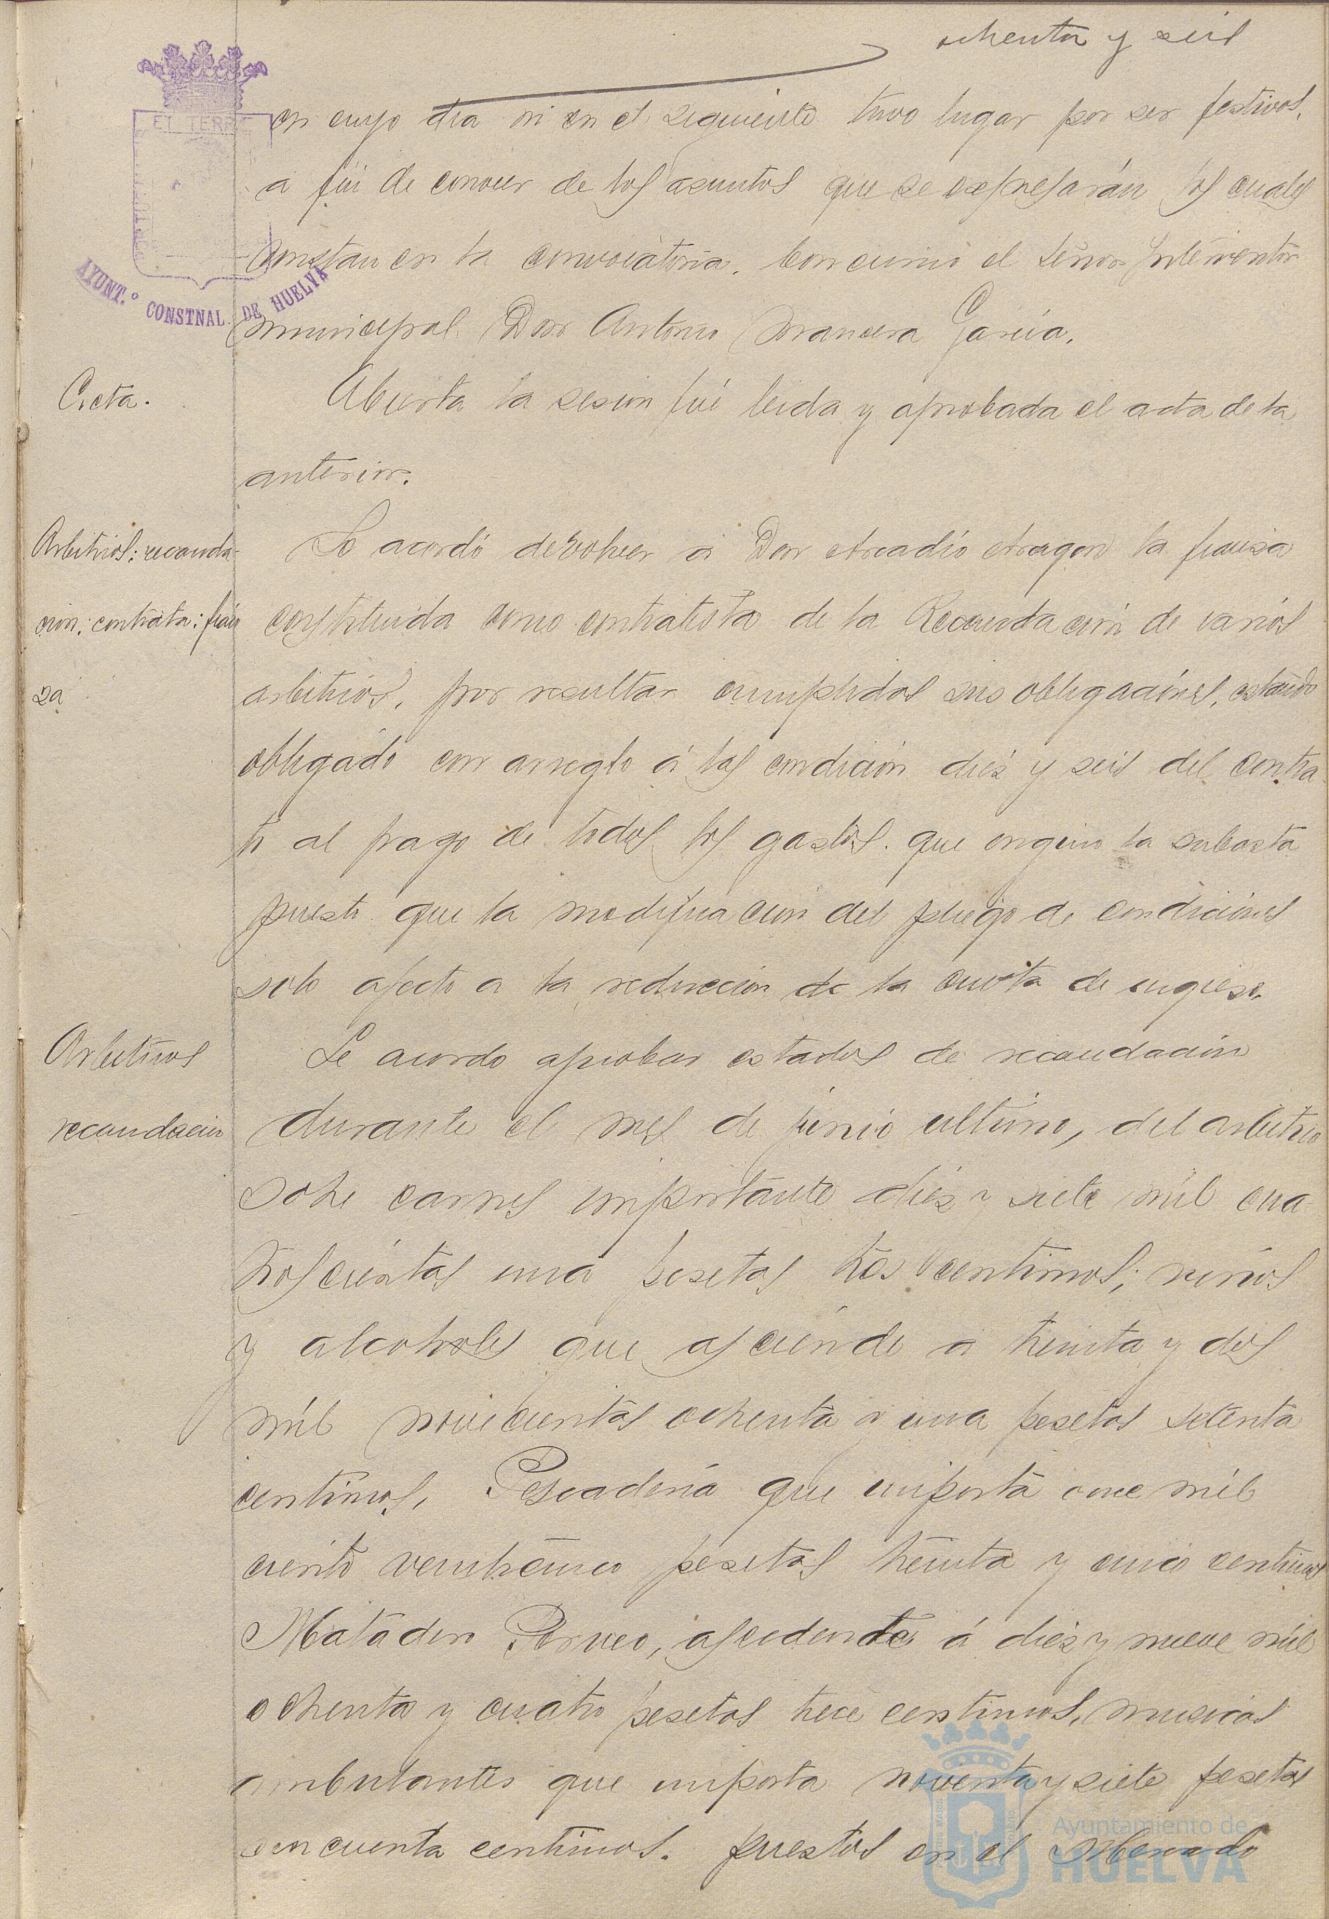 ochenta y seis
en cuyo dia ni en el siguiente tuvo lugar por ser festivos,
a fin de conocer de los asuntos que se expresarán los cuales
constan en la convocatoria. Concurrió el Señor Interventor
municipal Don Antonio Mancera García.
Acta.
Abierta la sesion fué leida y aprobada el acta de la
anterior.
Arbitrios: recauda-
cion: contrata: fian
za
Se acordó devolver a Don Arcadio Aragon la fianza
constituida como contratista de la Recaudación de varios
arbitrios, por resultar cumplidas sus obligaciones, estando
obligado con arreglo á las condición diez y seis del contra
to al pago de todos los gastos que origino la subasta
puesto que la modificacion del pliego de condiciones
solo afecto a la reducción de la cuota de ingreso.
Arbitrios
recaudacion
Se acordo aprobar estados de recaudación
durante el mes de junio ultimo, del arbitrio
sobre carnes importante diez y siete mil cua
troscientas una pesetas tres centimos; vinos
y alcoholes que asciende a treinta y dos
mil novecientas ochenta y una pesetas setenta
centimos, Pescadería que importa once mil
ciento veinticinco pesetas treinta y cinco centimos
Matadero Porcuno, ascendente á diez y nueve mil
ochenta y cuatro pesetas trece centimos, musicas
ambulantes que importa noventa y siete pesetas
cincuenta centimos. puestos en el Mercado
EL TERRÆ
AYUNT.º CONSTNAL. DE HUELVA
Ayuntamiento de
HUELVA